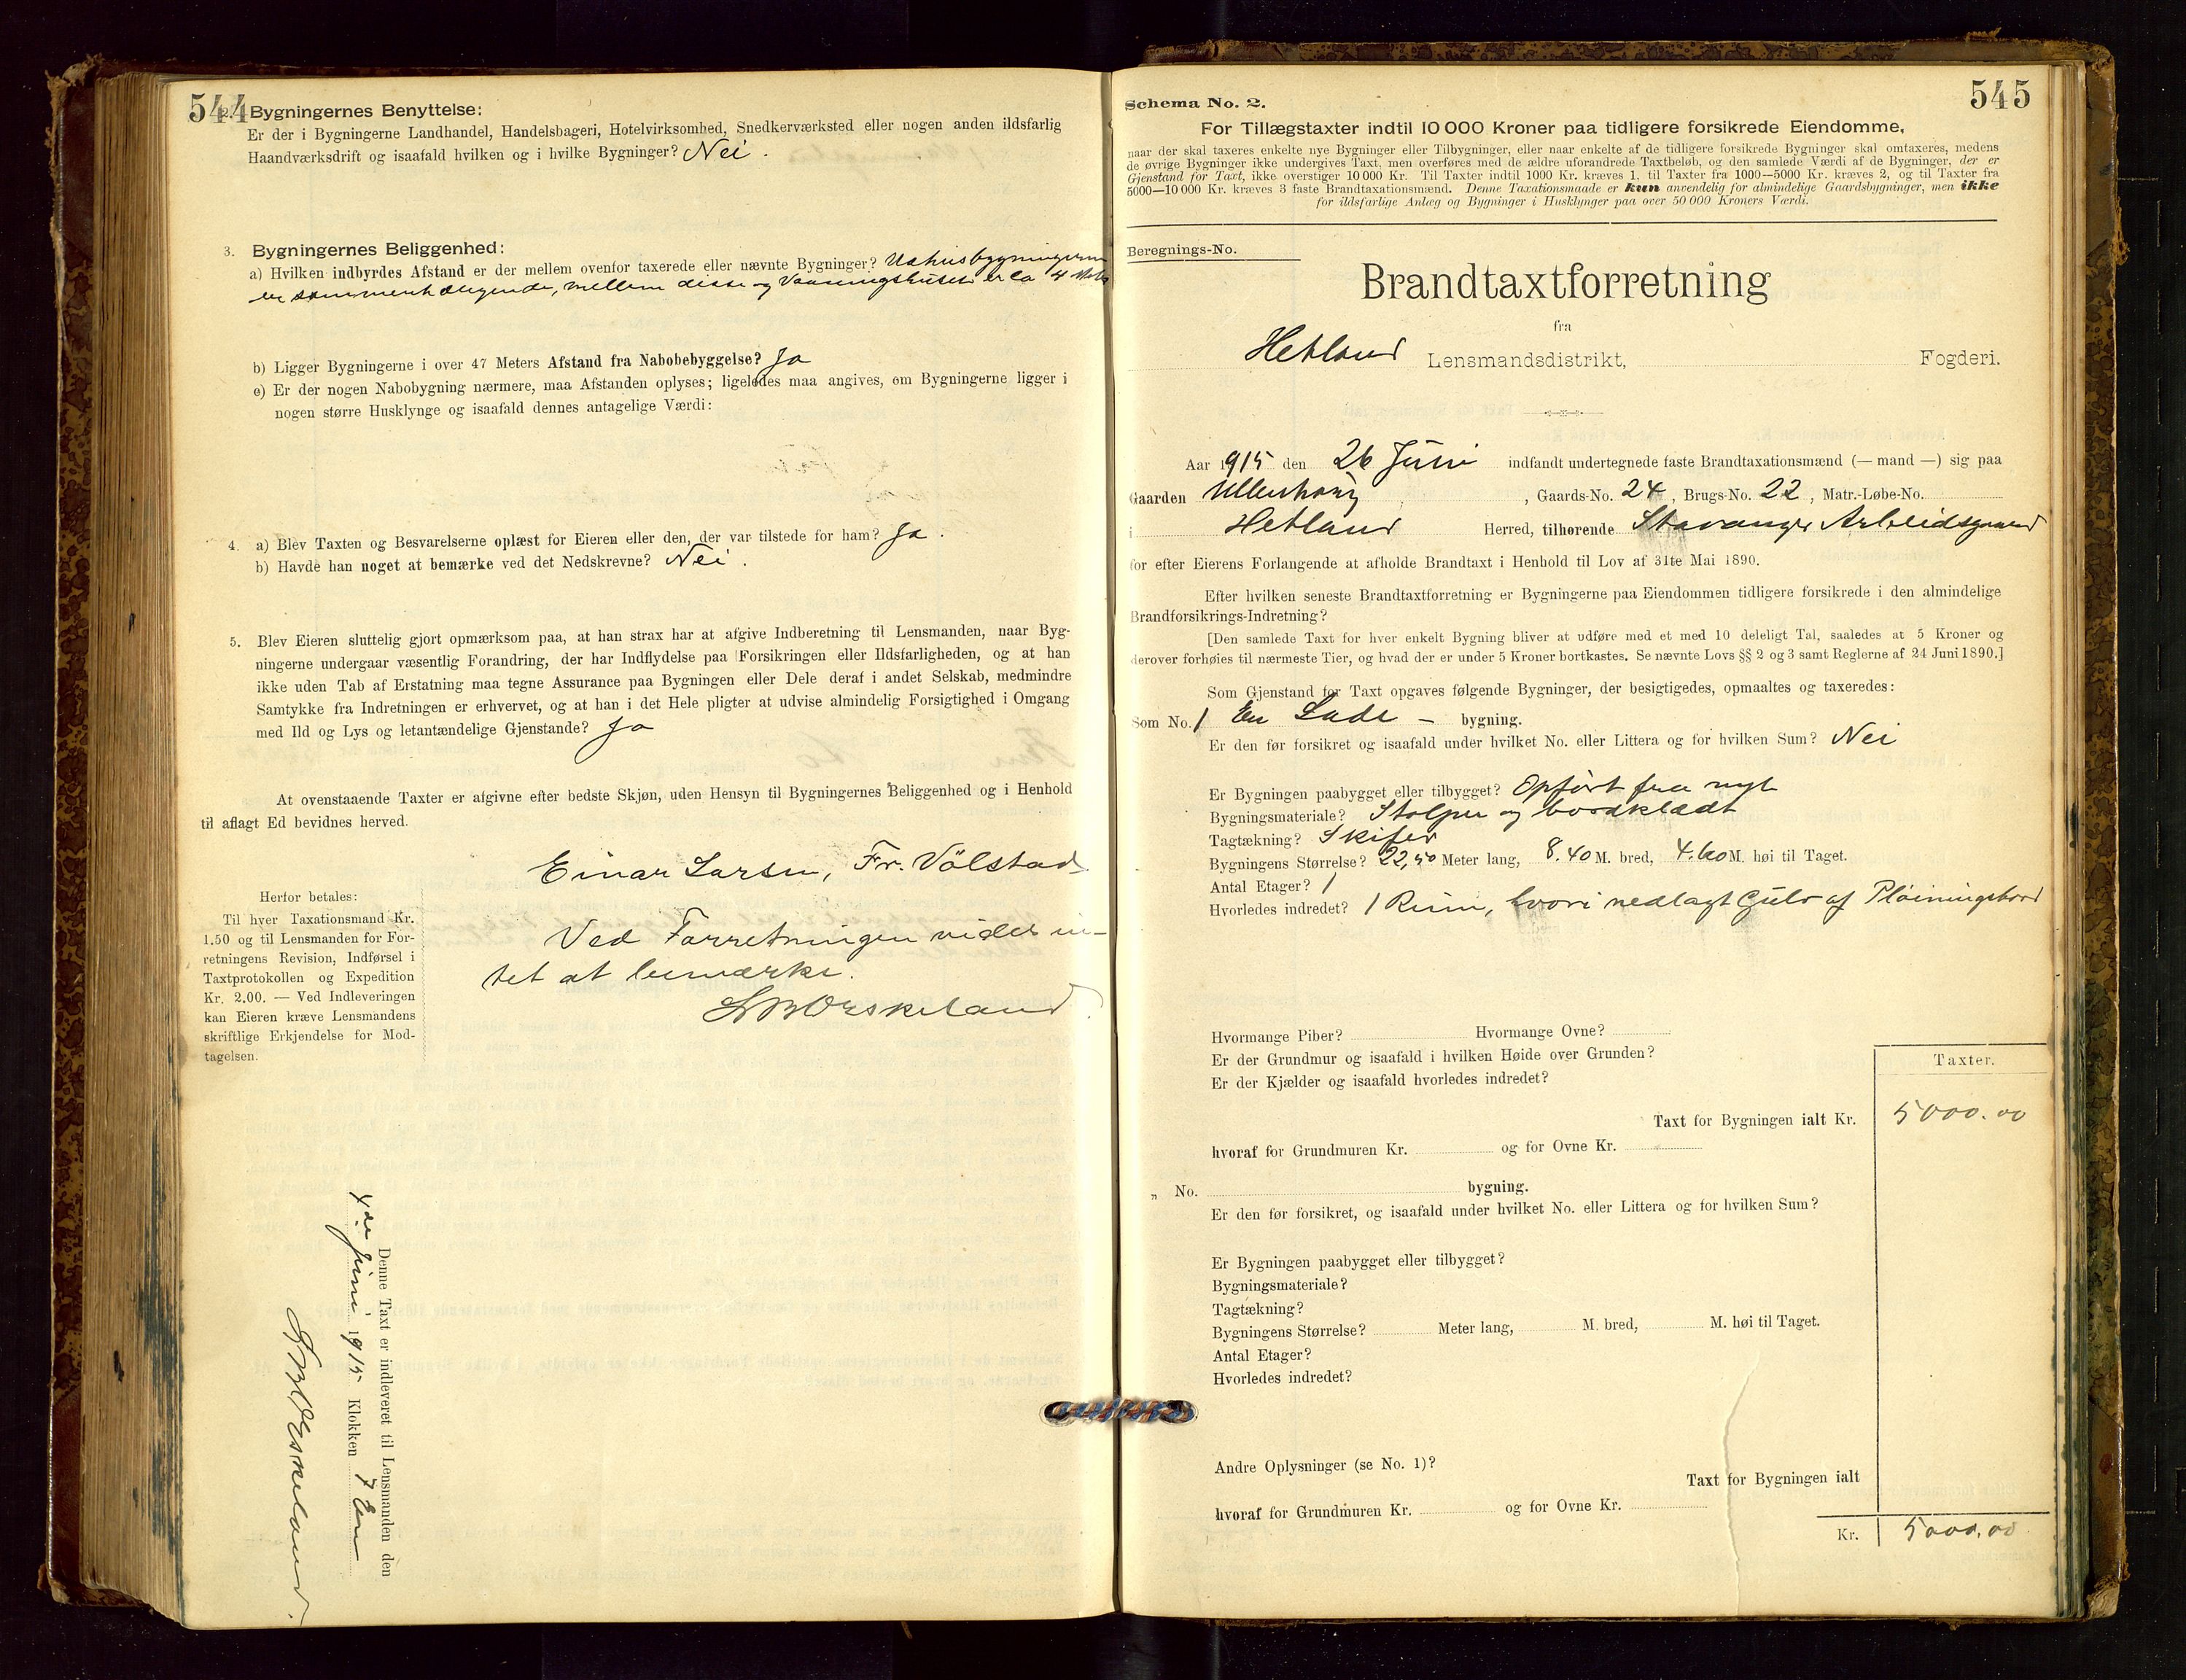 544
2. Bygningernes Benyttelse:
Er der i Bygningerne Landhandel, Handelsbageri, Hotelvirksomhed, Snedkerværksted eller nogen anden ildsfarlig
Haandværksdrift og isaafald hvilken og i hvilke Bygninger? Nei.
3. Bygningernes Beliggenhed:
a) Hvilken indbyrdes Afstand er der mellem ovenfor taxerede eller nævnte Bygninger? Udhusbygningerne
er sammenhængende, mellem disse og Vaaningshuset er ca 4 Meter
b) Ligger Bygningerne i over 47 Meters Afstand fra Nabobebyggelse? Ja
c) Er der nogen Nabobygning nærmere, maa Afstanden oplyses; ligeledes maa angives, om Bygningerne ligger i
nogen større Husklynge og isaafald dennes antagelige Værdi:
4. a) Blev Taxten og Besvarelserne oplæst for Eieren eller den, der var tilstede for ham? Ja.
b) Havde han noget at bemærke ved det Nedskrevne? Nei.
5. Blev Eieren sluttelig gjort opmærksom paa, at han strax har at afgive Indberetning til Lensmanden, naar Byg-
ningerne undergaar væsentlig Forandring, der har Indflydelse paa Forsikringen eller Ildsfarligheden, og at han
ikke uden Tab af Erstatning maa tegne Assurance paa Bygningen eller Dele deraf i andet Selskab, medmindre
Samtykke fra Indretningen er erhvervet, og at han i det Hele pligter at udvise almindelig Forsigtighed i Omgang
med Ild og Lys og letantændelige Gjenstande? Ja
At ovenstaaende Taxter er afgivne efter bedste Skjøn, uden Hensyn til Bygningernes Beliggenhed og i Henhold
til aflagt Ed bevidnes herved.
Einar Larsen, Fr. Völstad
Herfor betales:
Til hver Taxationsmand Kr.
1.50 og til Lensmanden for For-
retningens Revision, Indførsel i
Taxtprotokollen og Expedition
Kr. 2.00. — Ved Indleveringen
kan Eieren kræve Lensmandens
skriftlige Erkjendelse for Mod-
tagelsen.
Ved Forretningen vides in-
tet at bemærke.
Denne Taxt er indleveret til Lensmanden den
4de Juni 1915 Klokken 7 Em
545
Schema No. 2.
For Tillægstaxter indtil 10 000 Kroner paa tidligere forsikrede Eiendomme,
naar der skal taxeres enkelte nye Bygninger eller Tilbygninger, eller naar enkelte af de tidligere forsikrede Bygninger skal omtaxeres, medens
de øvrige Bygninger ikke undergives Taxt, men overføres med de ældre uforandrede Taxtbeløb, og den samlede Værdi af de Bygninger, der er
Gjenstand for Taxt, ikke overstiger 10 000 Kr. Til Taxter indtil 1000 Kr. kræves 1, til Taxter fra 1000—5000 Kr. kræves 2, og til Taxter fra
5000—10 000 Kr. kræves 3 faste Brandtaxationsmænd. Denne Taxationsmaade er kun anvendelig for almindelige Gaardsbygninger, men ikke
for ildsfarlige Anlæg og Bygninger i Husklynger paa over 50 000 Kroners Værdi.
Beregnings-No.
Brandtaxtforretning
fra
Hetland Lensmandsdistrikt, Fogderi.
Aar 1915 den 26 Juni indfandt undertegnede faste Brandtaxationsmænd (— mand —) sig paa
Gaarden Ullenhaug, Gaards-No. 24, Brugs-No. 22, Matr.-Løbe-No.
i Hetland Herred, tilhørende Stavanger Arbeidsgaard
for efter Eierens Forlangende at afholde Brandtaxt i Henhold til Lov af 31te Mai 1890.
Efter hvilken seneste Brandtaxtforretning er Bygningerne paa Eiendommen tidligere forsikrede i den almindelige
Brandforsikrings-Indretning?
[Den samlede Taxt for hver enkelt Bygning bliver at udføre med et med 10 deleligt Tal, saaledes at 5 Kroner og
derover forhøies til nærmeste Tier, og hvad der er under 5 Kroner bortkastes. Se nævnte Lovs §§ 2 og 3 samt Reglerne af 24 Juni 1890.]
Som Gjenstand for Taxt opgaves følgende Bygninger, der besigtigedes, opmaaltes og taxeredes:
Som No. 1 En Lade – bygning.
Er den før forsikret og isaafald under hvilket No. eller Littera og for hvilken Sum? Nei
Er Bygningen paabygget eller tilbygget? Opført fra nyt
Bygningsmateriale? Stolper og bordklædt
Tagtækning? Skifer
Bygningens Størrelse? 22,40 Meter lang, 8.40 M. bred, 4.60 M. høi til Taget.
Antal Etager? 1
Hvorledes indredet? 1 Rum, hvori nedlagt Gulv af Pløiningsbord
Hvormange Piber? Hvormange Ovne?
Er der Grundmur og isaafald i hvilken Høide over Grunden?
Er der Kjælder og isaafald hvorledes indredet?
Taxter.
Taxt for Bygningen ialt Kr. 5000.00
hvoraf for Grundmuren Kr. og for Ovne Kr.
„ No. bygning.
Er den før forsikret, og isaafald under hvilket No. eller Littera og for hvilken Sum?
Er Bygningen paabygget eller tilbygget?
Bygningsmateriale?
Tagtækning?
Bygningens Størrelse? Meter lang, M. bred, M. høi til Taget.
Antal Etager?
Hvorledes indredet?
Andre Oplysninger (se No. 1)?
Taxt for Bygningen ialt
hvoraf for Grundmuren Kr. og for Ovne Kr.
Kr. 5000.00